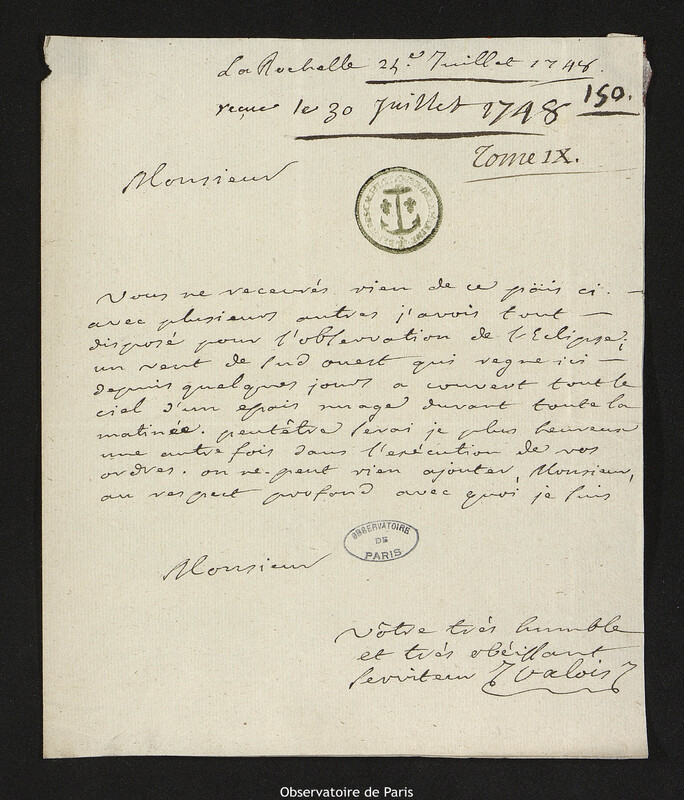 La Rochelle 25.e Juillet 1748
150.
reçue le 30 Juillet 1748
Tome IX.
Monsieur
Vous ne recevrés rien de ce päis ci.
avec plusieurs autres j'avois tout
disposé pour l'observation de l'Eclipse;
un vent de sud ouest qui regne ici
depuis quelques jours a couvert tout le
ciel d'un epais nuage durant toute la
matinée. peutêtre serai je plus heureux
une autre fois dans l'exécution de vos
ordres. on ne peut rien ajouter, Monsieur,
au respect profond avec quoi je suis
OBSERVATOIRE
DE
PARIS
Monsieur
Vôtre trés humble
et trés obéissant
serviteur Valois
Observatoire de Paris